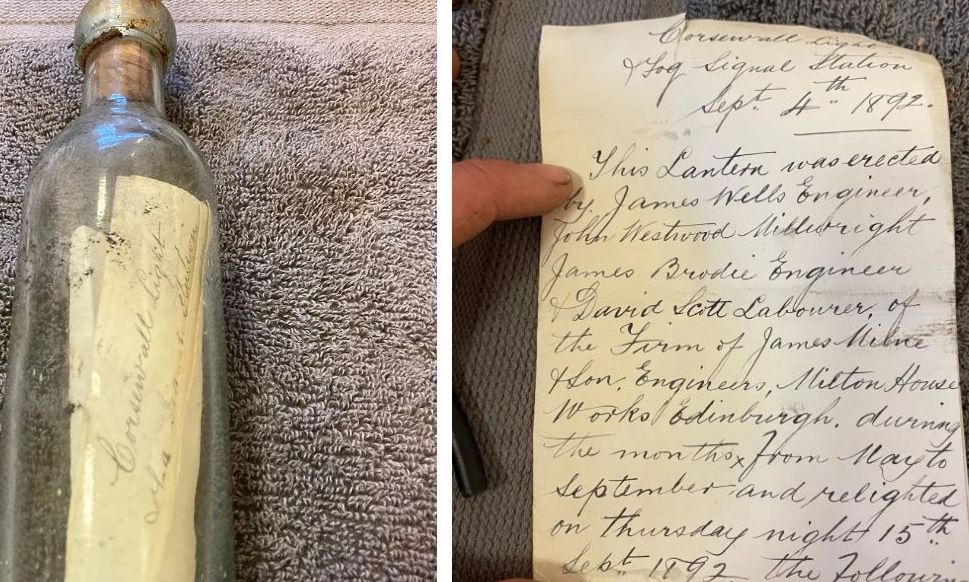 Corsewall Light
Corsewall Light
& Fog Signal Station
Sept. 4th 1892.
This Lantern was erected
by James Wells Engineer,
John Westwood Millwright
James Brodie Engineer
& David Scott Labourer, of
the Firm of James Milne
& Son, Engineers, Milton House
Works Edinburgh. during
the months from May to
September and relighted
on Thursday night 15th
Sept 1892 the followin